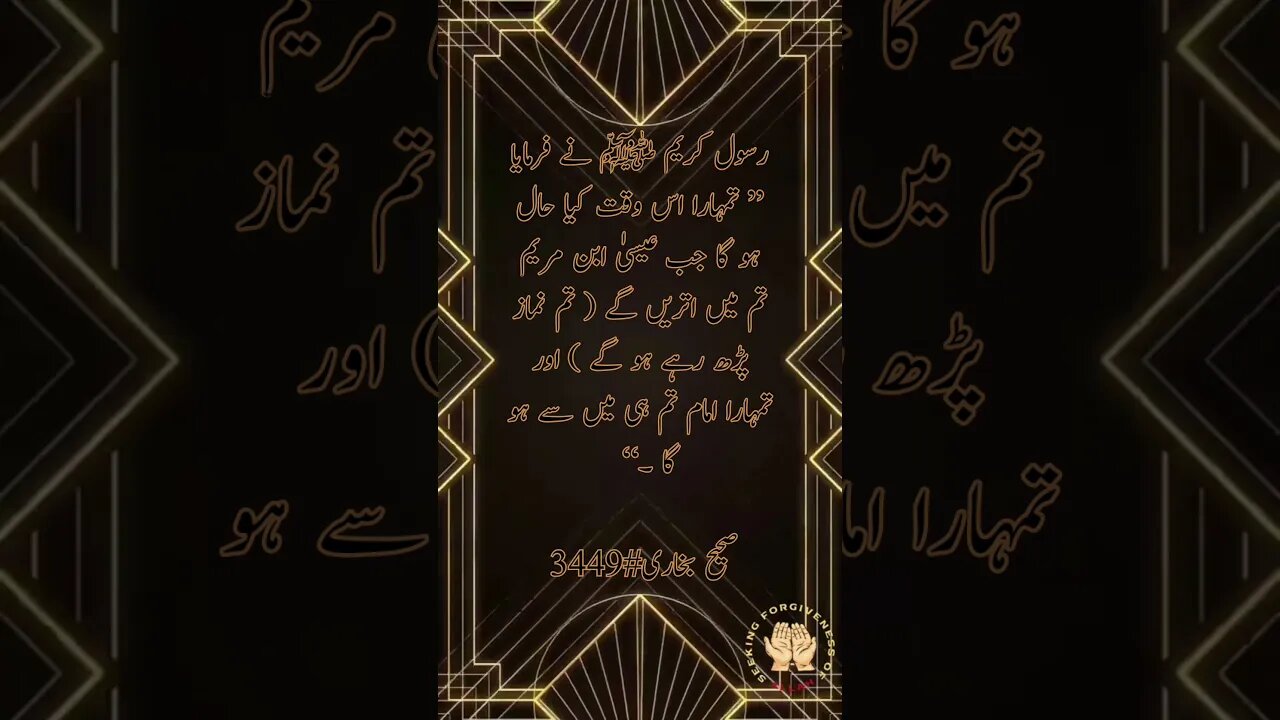 رسول کریم ﷺ نے فرمایا
’’ تمہارا اس وقت کیا حال
ہو گا جب عیسیٰ ابن مریم
تم میں اتریں گے ( تم نماز
پڑھ رہے ہو گے ) اور
تمہارا امام تم ہی میں سے ہو
گا ۔‘‘
صحیح بخاری#3449
SEEKING FORGIVENESS OF